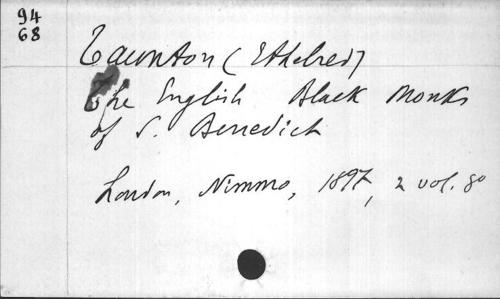 94
68
Taunton (Ethelred)
The English Black Monks
of S. Benedict
London, Nimmo, 1897, 2 vol. 8o